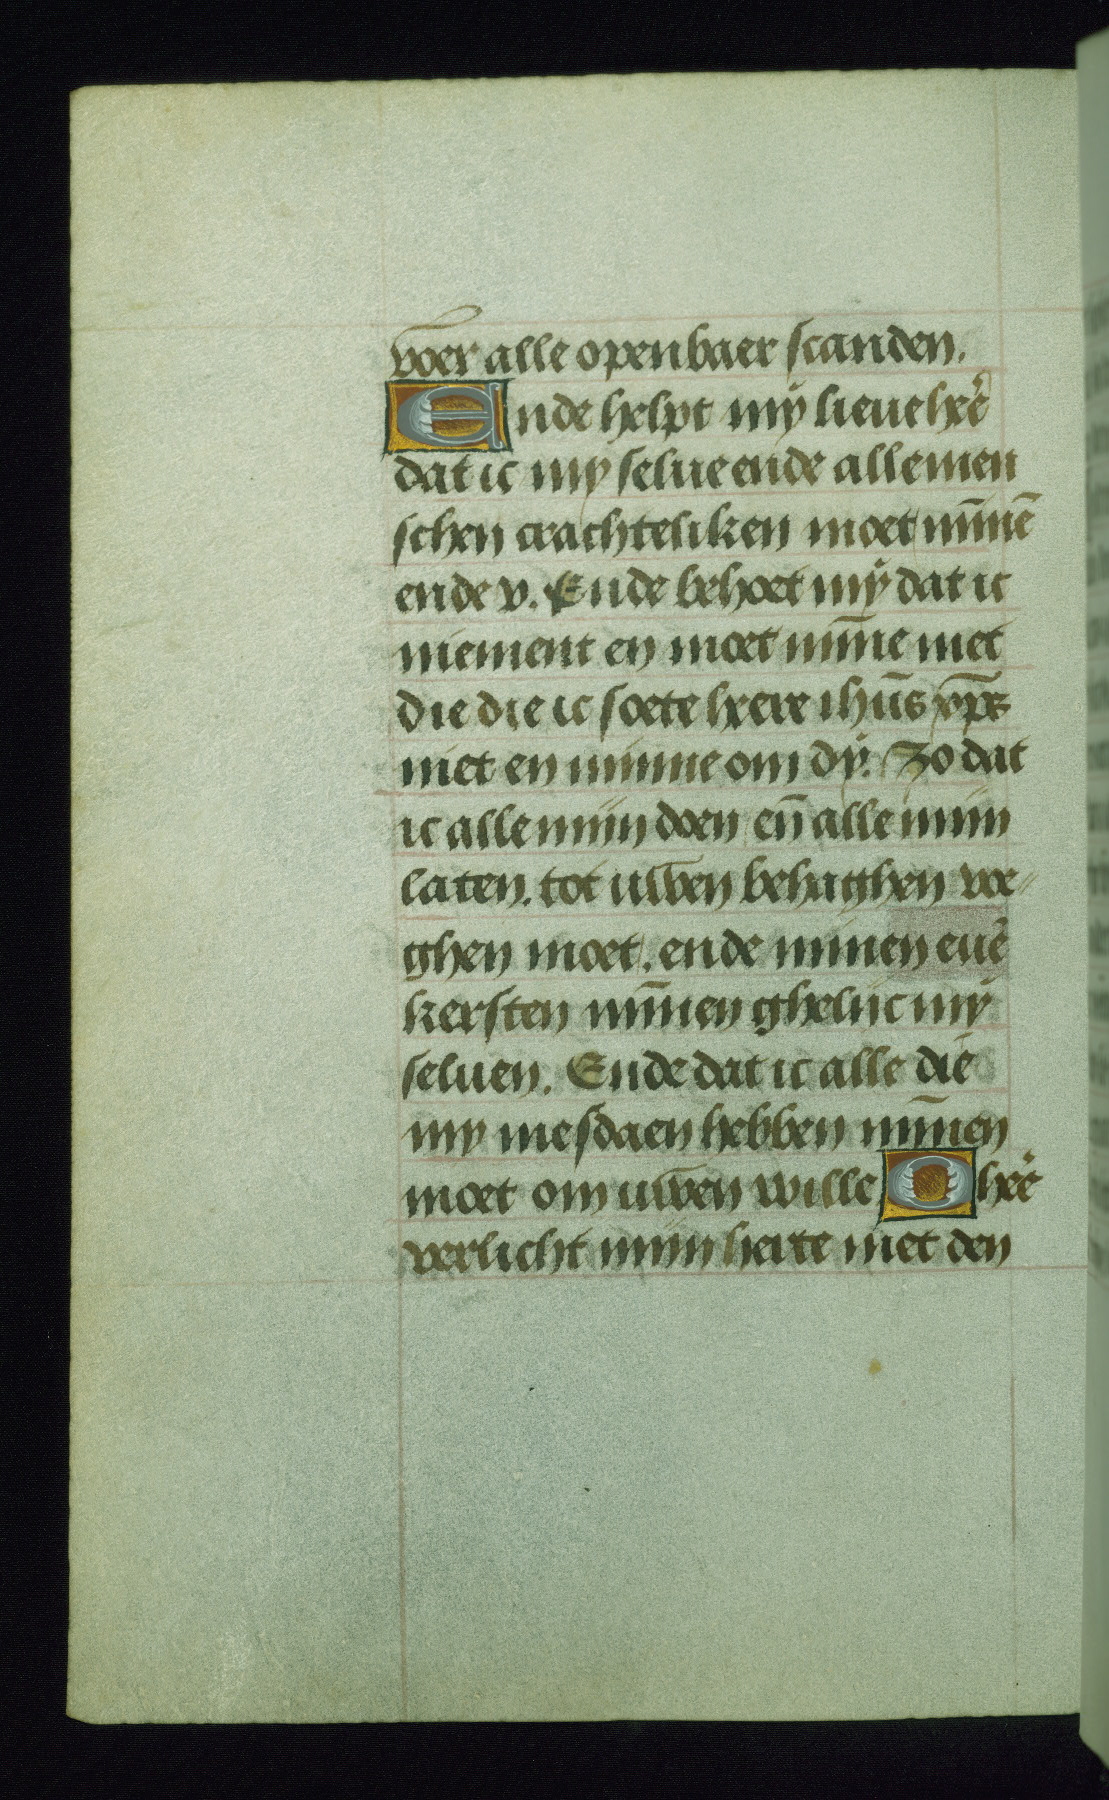 voer alle openbaer scanden.
Ende helpt mÿ lieue heē
dat ic my selue ende alle men
schen crachteliken moet mīnē
ende v. Ende behoet mÿ dat ic
niement en moet mīne met
die die ic soete heere ihūs xp̄s
niet en minne om dÿ. Zo dat
ic alle miin doen eñ alle miin
laten. tot uwen behaghen voe-
ghen moet. ende minen euē
kersten mīnen gheliic mÿ
seluen. Ende dat ic alle die
my mesdaen hebben mīnen
moet om uwen wille O heē
verlicht miin herte met den